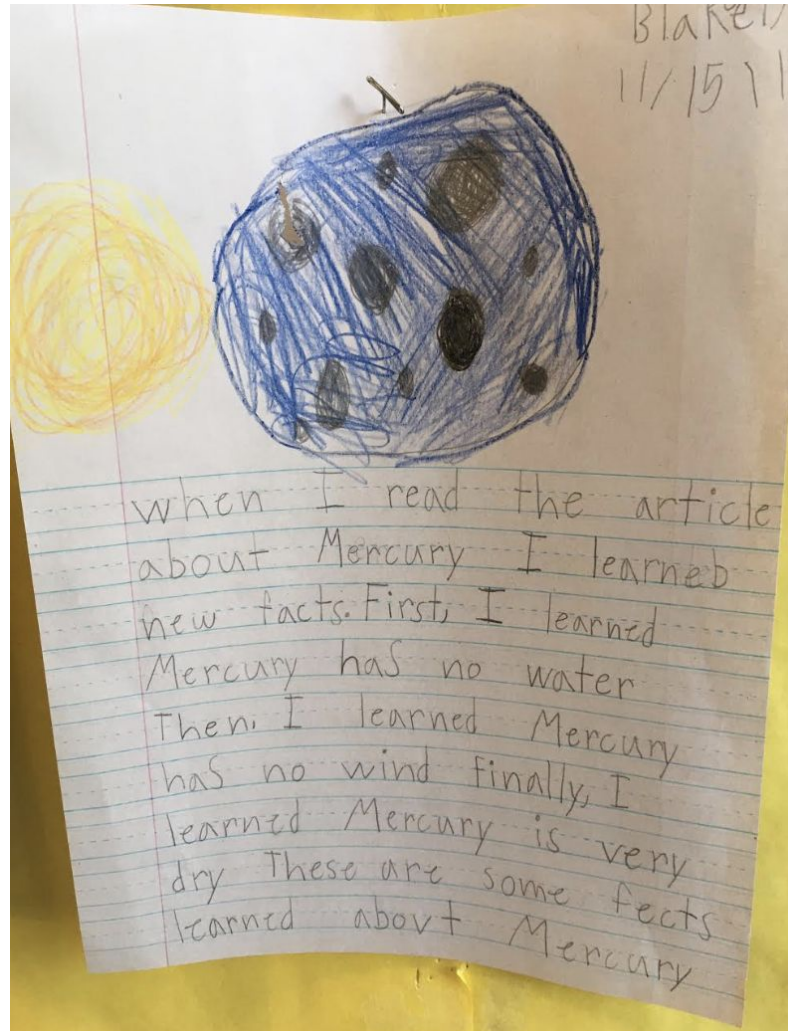 11/15
when I read the article
about Mercury I learneb
new facts. First, I learned
Mercury has no water
Then, I learned Mercury
has no wind finally, I
learned Mercury is very
dry These are some fects
learned about Mercury